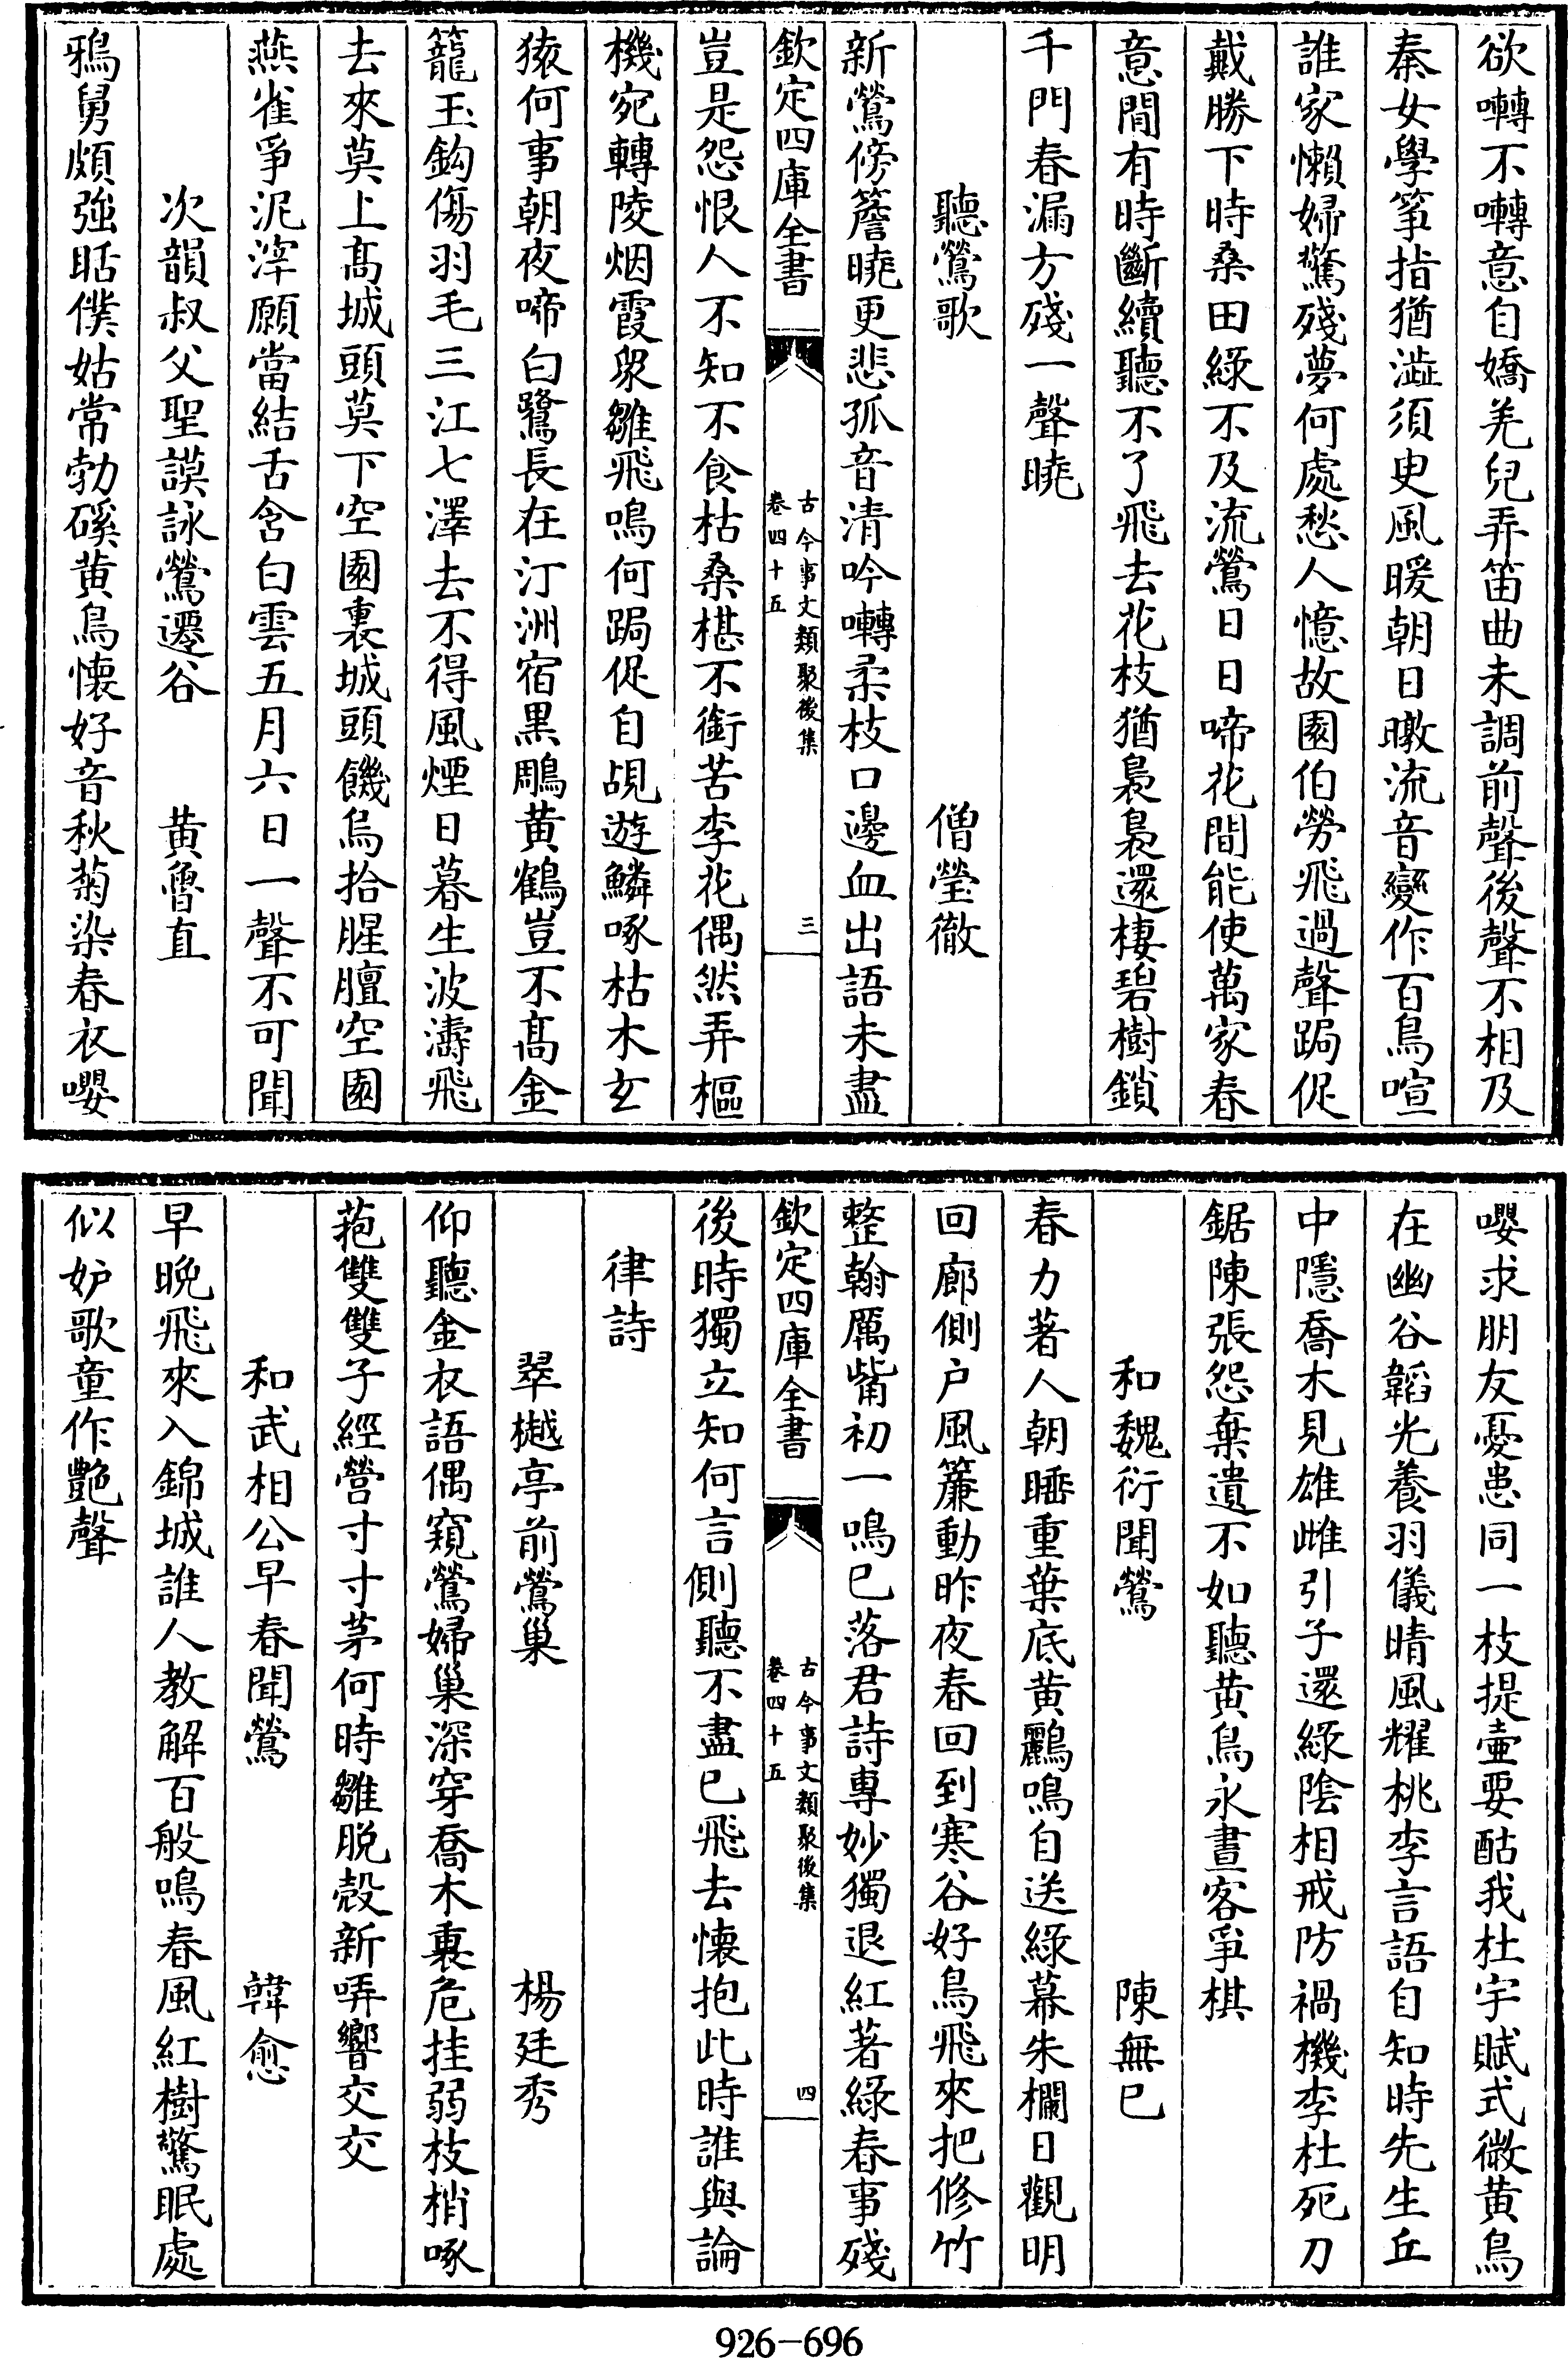 欲囀不囀意自嬌羌兒弄笛曲未調前聲後聲不相及
秦女學箏指猶澁須臾風暖朝日暾流音變作百鳥喧
誰家懶婦驚殘夢何處愁人憶故園伯勞飛過聲跼促
戴勝下時桑田綠不及流鶯日日啼花間能使萬家春
意間有時斷續聽不了飛去花枝猶裊裊還棲碧樹鎖
千門春漏方殘一聲曉
聽鶯歌　僧瑩徹
新鶯傍簷曉更悲孤音清吟囀柔枝口邊血出語未盡
欽定四庫全書
古今事文類聚後集
卷四十五
三
豈是怨恨人不知不食枯桑椹不銜苦李花偶然弄樞
機宛轉陵烟霞衆雛飛鳴何跼促自覘遊鱗啄枯木玄
猿何事朝夜啼白鷺長在汀洲宿黒鵰黃鶴豈不髙金
籠玉鈎傷羽毛三江七澤去不得風煙日暮生波濤飛
去來莫上髙城頭莫下空園裏城頭饑烏拾腥膻空園
燕雀爭泥滓願當結舌含白雲五月六日一聲不可聞
次韻叔父聖謨詠鶯遷谷　黄魯直
鴉舅頗強聒僕姑常勃磎黄鳥懐好音秋菊染春衣嚶
嚶求朋友憂患同一枝提壷要酤我杜宇賦式微黄鳥
在幽谷韜光養羽儀晴風耀桃李言語自知時先生丘
中隱喬木見雄雌引子還綠陰相戒防禍機李杜死刀
鋸陳張怨棄遺不如聽黄鳥永晝客爭棋
和魏衍聞鶯　陳無已
春力著人朝睡重葉底黄鸝鳴自送綠幕朱欄日觀明
回廊側户風簾動昨夜春回到寒谷好鳥飛來把修竹
整翰厲觜初一鳴已落君詩專妙獨退紅著綠春事殘
欽定四庫全書
古今事文類聚後集
卷四十五
四
後時獨立知何言側聽不盡已飛去懐抱此時誰與論
律詩
翠樾亭前鶯巢　楊廷秀
仰聽金衣語偶窺鶯婦巢深穿喬木裏危挂弱枝梢啄
菢雙雙子經營寸寸茅何時雛脱殻新哢響交交
和武相公早春聞鶯　韓愈
早晩飛來入錦城誰人教解百般鳴春風紅樹驚眠處
似妒歌童作艶聲
926-696